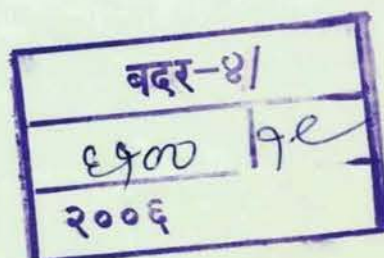 बदर-४/
६१०० / १९
२००६